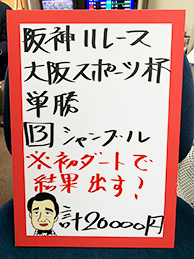 阪神11レース
大阪スポーツ杯
単勝
13 シャンブル
※初ダートで
結果出す!
計20000円